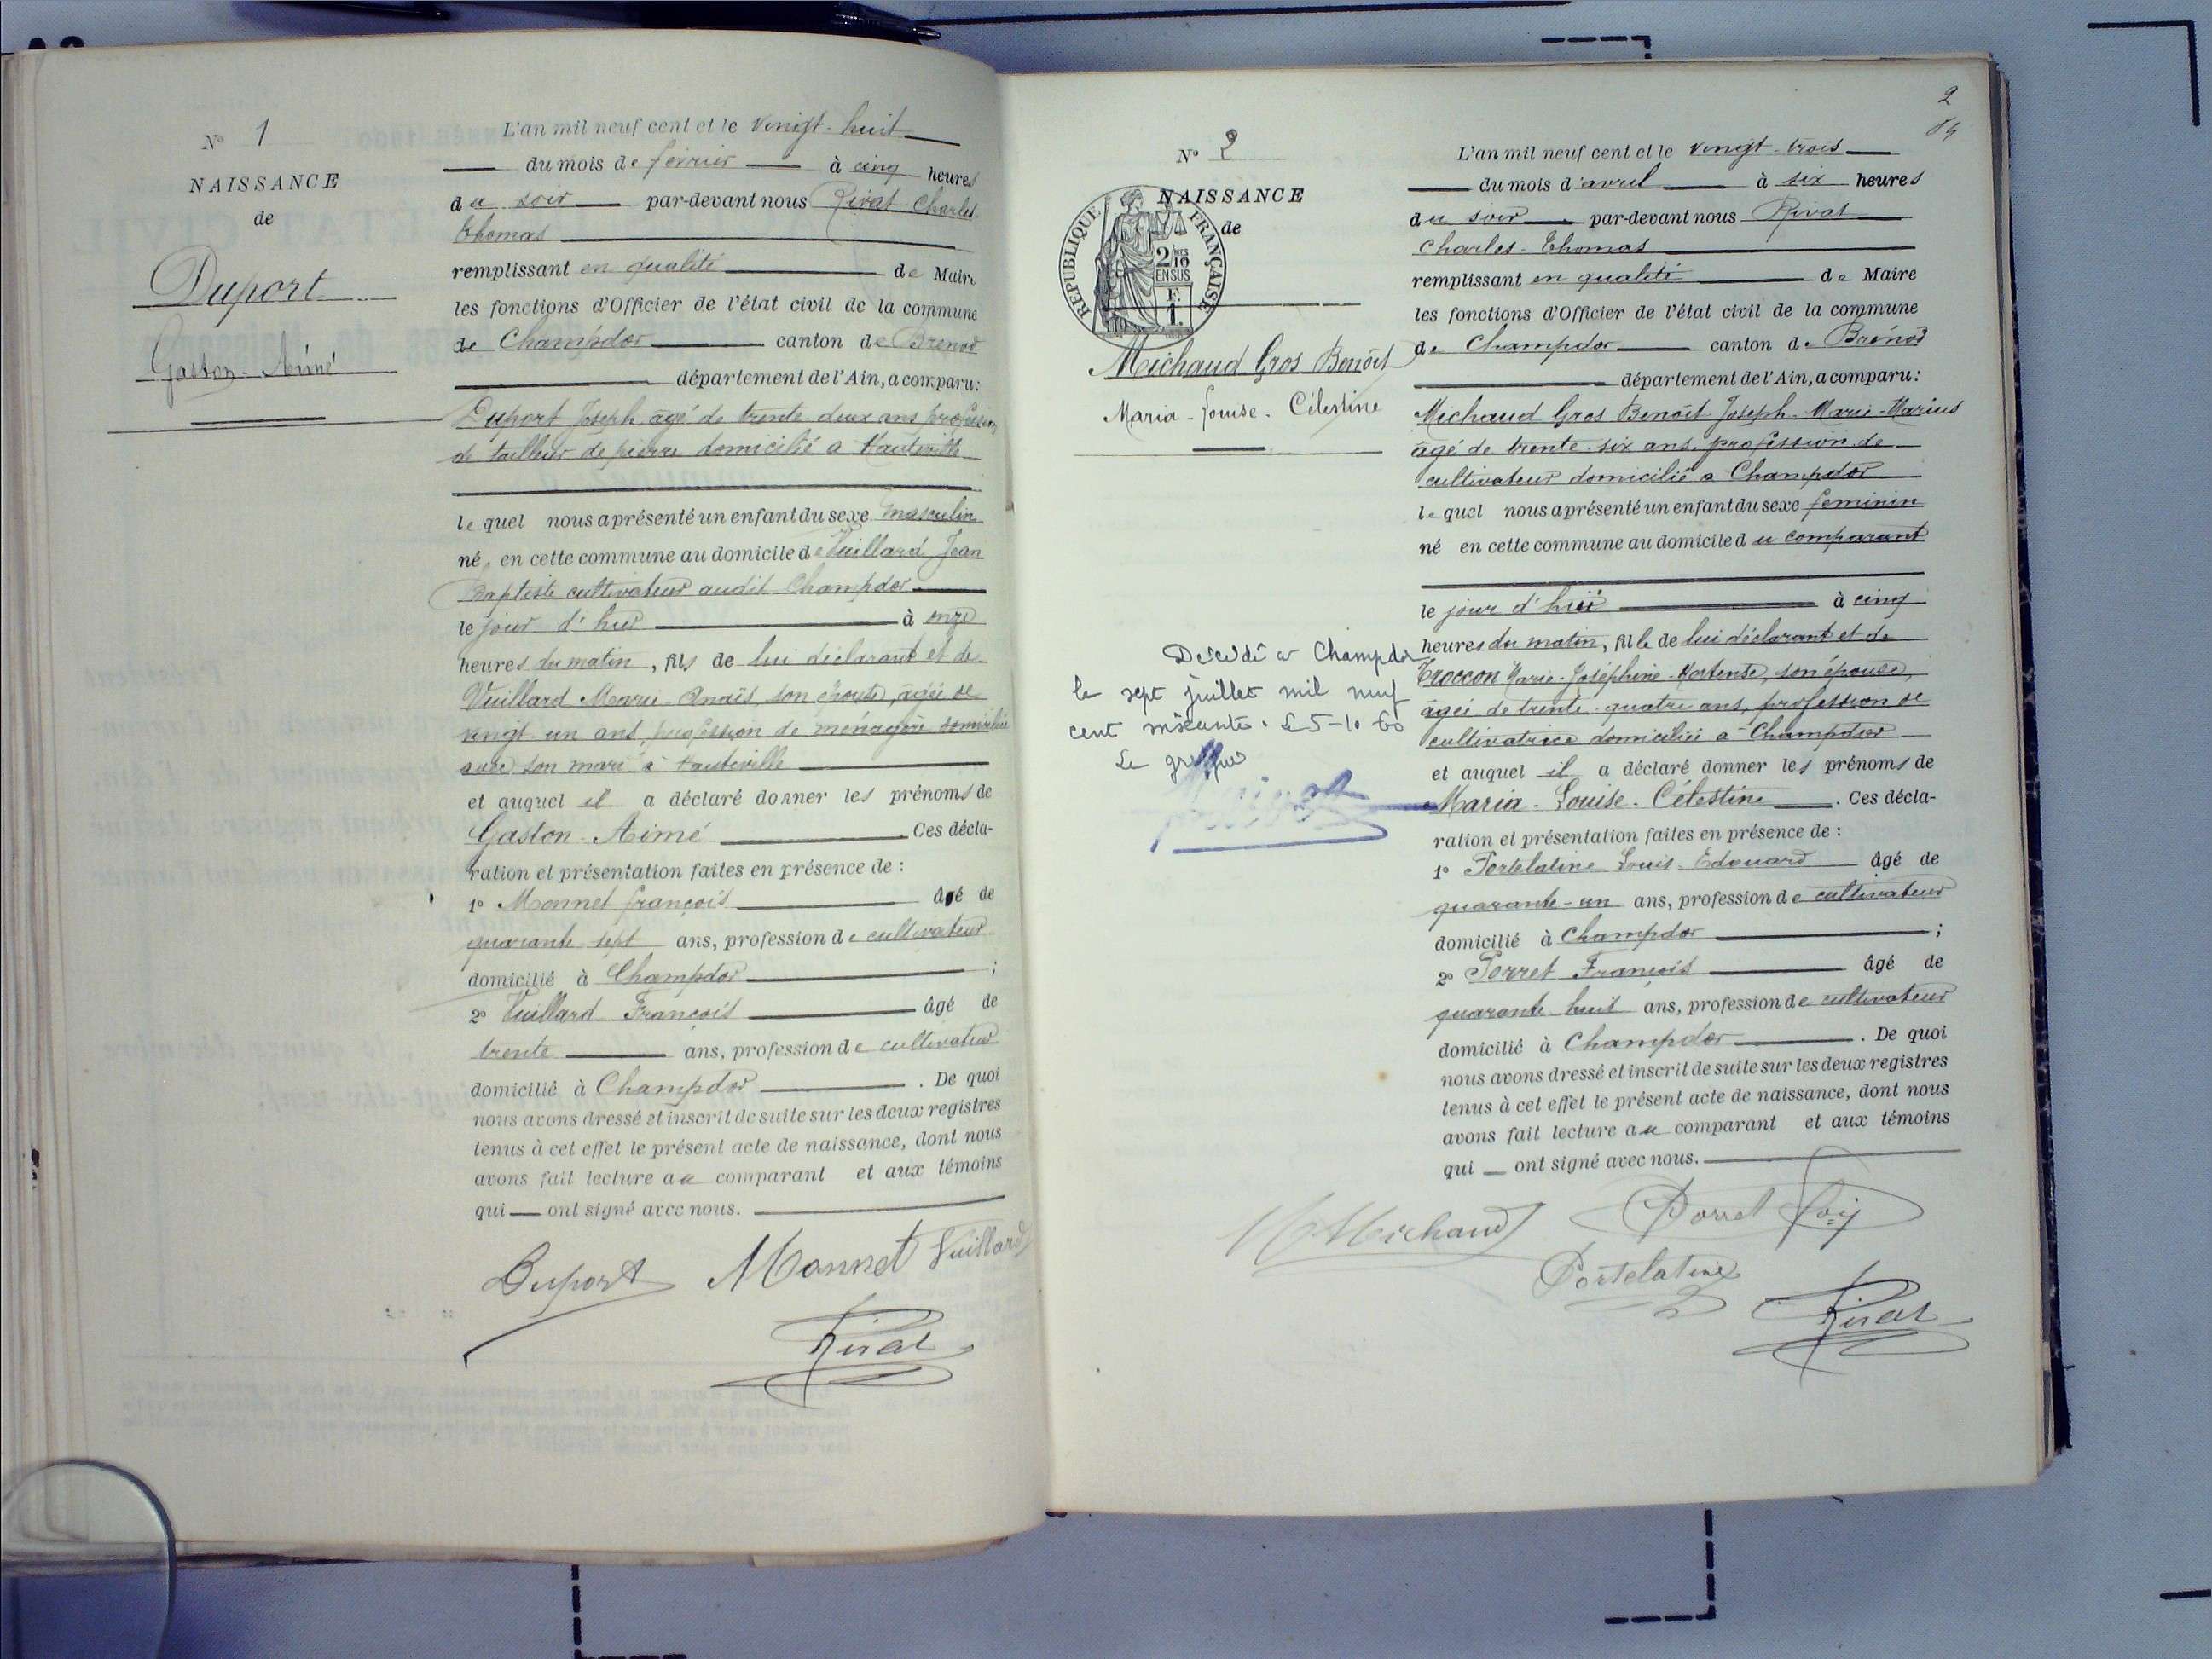 N° 1
NAISSANCE
de
Duport
Gaston-Aimé
L'an mil neuf cent et le vingt-huit
du mois de février à cinq heures
du soir par-devant nous Rivat Charles
Thomas
remplissant en qualité de Maire
les fonctions d'Officier de l'état civil de la commune
de Champdor canton de Brénod
département de l'Ain, a comparu:
Duport Joseph âgé de trente-deux ans profession
de tailleur de pierre domicilié a Hauteville
le quel nous a présenté un enfant du sexe masculin
né, en cette commune au domicile de Vuillard Jean
Baptiste cultivateur audit Champdor
le jour d'hui à onze
heures du matin, fils de lui déclarant et de
Vuillard Marie-Anaïs, son épouse, âgée de
vingt un ans, profession de ménagère domiciliée
avec son mari à Hauteville
et auquel il a déclaré donner les prénoms de
Gaston-Aimé Ces décla-
ration et présentation faites en présence de :
1° Monnet françois âgé de
quarante sept ans, profession de cultivateur
domicilié à Champdor ;
2° Vuillard François âgé de
trente ans, profession de cultivateur
domicilié à Champdor . De quoi
nous avons dressé et inscrit de suite sur les deux registres
tenus à cet effet le présent acte de naissance, dont nous
avons fait lecture au comparant et aux témoins
qui ont signé avec nous.
Duport Monnet Vuillard
Rivat
2
N° 2
NAISSANCE
de
RÉPUBLIQUE FRANÇAISE
2/10
EN SUS
F.
1.
Michaud Gros Benoît
Maria-Louise-Célestine
Décédé à Champdor
le sept juillet mil neuf
cent soixante. Le 5-10-60
Le greffier
L'an mil neuf cent et le vingt-trois
du mois d'avril à six heures
du soir par-devant nous Rivat
Charles-Thomas
remplissant en qualité de Maire
les fonctions d'Officier de l'état civil de la commune
de Champdor canton de Brénod
département de l'Ain, a comparu:
Michaud Gros Benoît Joseph-Marie-Marius
âgé de trente-six ans, profession de
cultivateur domicilié a Champdor
le quel nous a présenté un enfant du sexe féminin
né en cette commune au domicile du comparant
le jour d'hui à cinq
heures du matin, fille de lui déclarant et de
Troccon Marie-Joséphine-Hortense, son épouse,
âgée de trente-quatre ans, profession de
cultivatrice domiciliée à Champdor
et auquel il a déclaré donner les prénoms de
Maria-Louise-Célestine . Ces décla-
ration et présentation faites en présence de :
1° Portelatine Louis-Edouard âgé de
quarante-un ans, profession de cultivateur
domicilié à Champdor ;
2° Porret François âgé de
quarante huit ans, profession de cultivateur
domicilié à Champdor . De quoi
nous avons dressé et inscrit de suite sur les deux registres
tenus à cet effet le présent acte de naissance, dont nous
avons fait lecture au comparant et aux témoins
qui ont signé avec nous.
Michaud Porret
Portelatine
Rivat